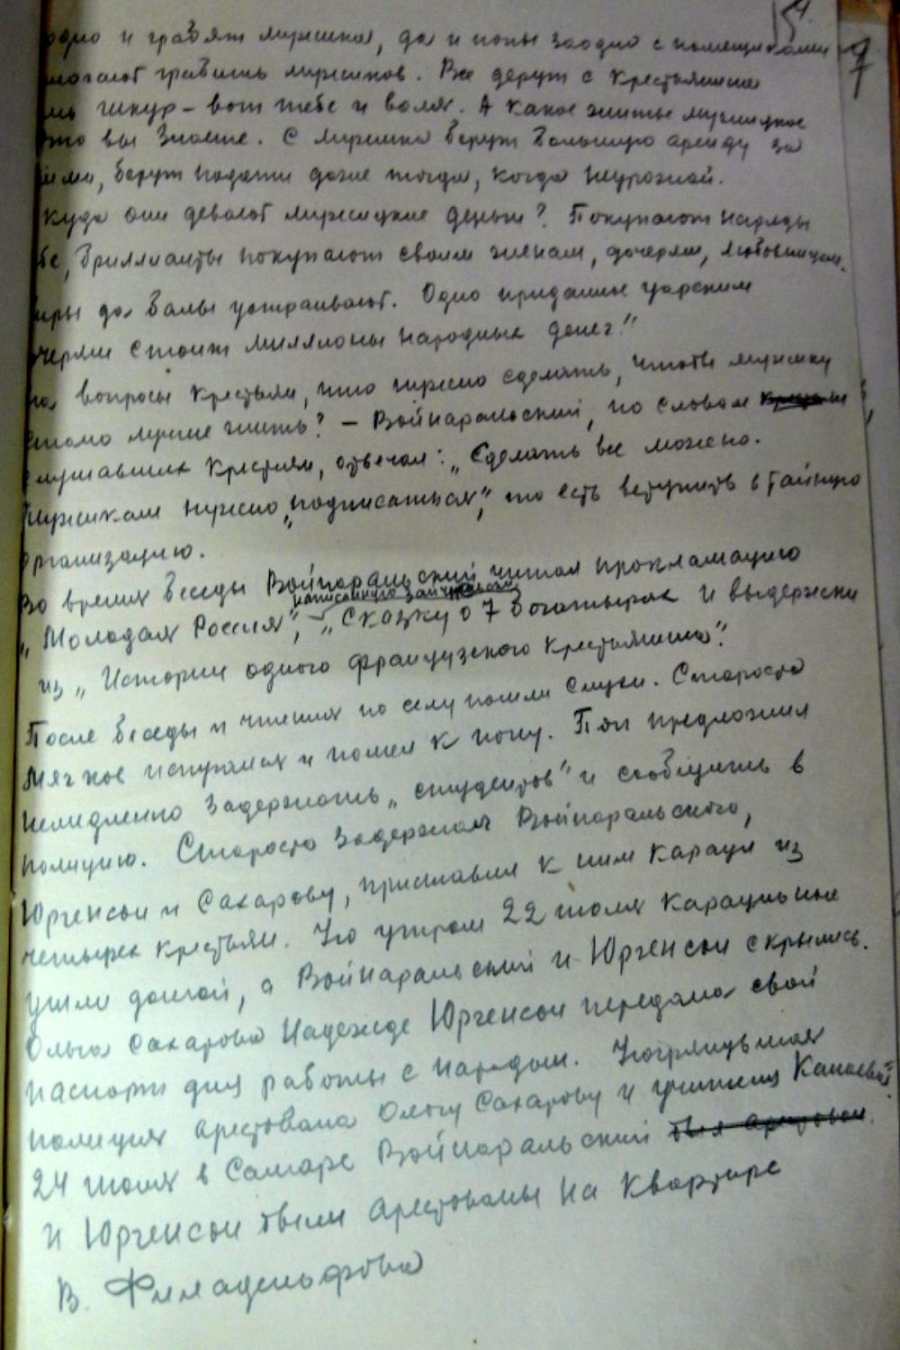 154
7
одно и грабят мужика, да и попы заодно с помещиками
могают грабить мужиков. Все дерут с крестьянина
мь шкур – вот тебе и воля. А какое житье мужицкое
это вы знаете. С мужика берут большую аренду за
емлю, берут подати даже тогда, когда неурожай.
куда они девают мужицкие деньги? Покупают наряды
бе, бриллианты покупают своим женам, дочерям, любовницам,
иры да балы устраивают. Одно приданое царским
очерям стоит миллионы народных денег!"
на вопросы крестьян, что нужно сделать, чтобы мужику
стало лучше жить? – Войнаральский, по словам
слушавших крестьян, отвечал: „Сделать все можно.
Мужикам нужно „подписаться", то есть вступить в тайную
организацию.
Во время беседы Войнаральский читал прокламацию
написанную Заичневским
„Молодая Россия", „Сказку о 7 богатырях и выдержки
из „Истории одного французского крестьянина".
После беседы и чтения по селу пошли слухи. Староста
Мягков испугался и пошел к попу. Поп предложил
немедленно задержать „студентов" и сообщить в
полицию. Староста задержал Войнаральского,
Юргенсон и Сахарову, приставил к ним караул из
четырех крестьян. Но утром 22 июля караульные
ушли домой, а Войнаральский и Юргенсон скрылись.
Ольга Сахарова Надежде Юргенсон передала свой
паспорт для работы с народом. Нагрянувшая
полиция арестовала Ольгу Сахарову и учитель
24 июля в Самаре Войнаральский был арестован.
и Юргенсон были арестованы на квартире
В. Филадельфова